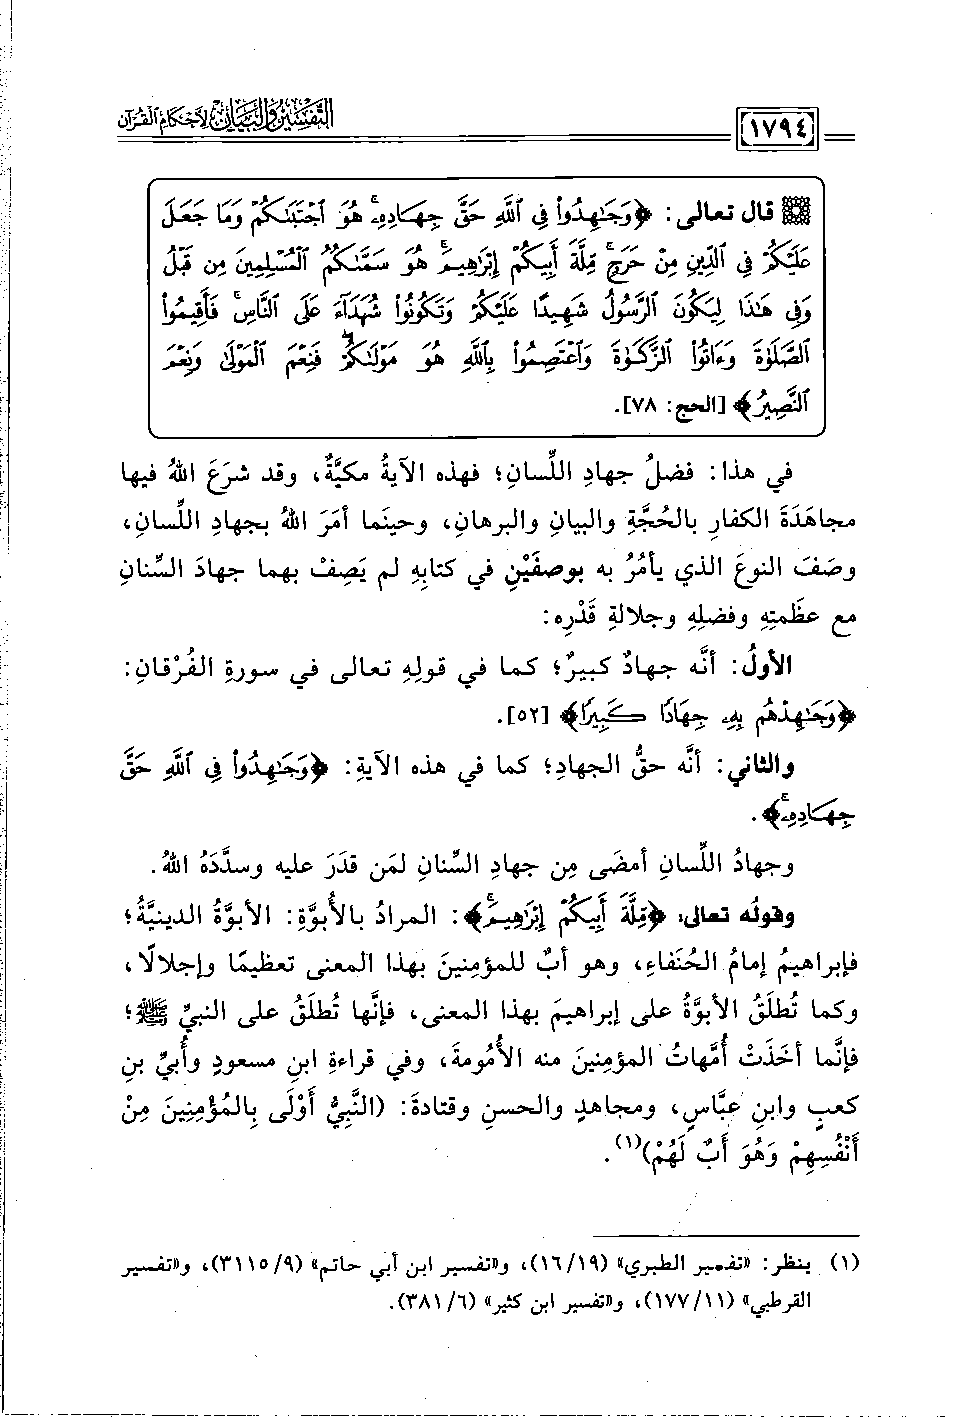 التفسير والبيان لأحكام القرآن
١٧٩٤
قال تعالى: ﴿وَجَٰهِدُوا۟ فِى ٱللَّهِ حَقَّ جِهَادِهِۦۚ هُوَ ٱجْتَبَىٰكُمْ وَمَا جَعَلَ
عَلَيْكُمْ فِى ٱلدِّينِ مِنْ حَرَجٍۚ مِّلَّةَ أَبِيكُمْ إِبْرَٰهِيمَۚ هُوَ سَمَّىٰكُمُ ٱلْمُسْلِمِينَ مِن قَبْلُ
وَفِى هَٰذَا لِيَكُونَ ٱلرَّسُولُ شَهِيدًا عَلَيْكُمْ وَتَكُونُوا۟ شُهَدَآءَ عَلَى ٱلنَّاسِۚ فَأَقِيمُوا۟
ٱلصَّلَوٰةَ وَءَاتُوا۟ ٱلزَّكَوٰةَ وَٱعْتَصِمُوا۟ بِٱللَّهِ هُوَ مَوْلَىٰكُمْۖ فَنِعْمَ ٱلْمَوْلَىٰ وَنِعْمَ
ٱلنَّصِيرُ﴾ [الحج: ٧٨].
في هذا: فضلُ جهادِ اللِّسانِ؛ فهذه الآيةُ مكيَّةٌ، وقد شرَعَ اللهُ فيها
مجاهَدَةَ الكفارِ بالحُجَّةِ والبيانِ والبرهانِ، وحينَما أمَرَ اللهُ بجهادِ اللِّسانِ،
وصَفَ النوعَ الذي يأمُرُ به بوصفَيْنِ في كتابِهِ لم يَصِفْ بهما جهادَ السِّنانِ
مع عظَمتِهِ وفضلِهِ وجلالةِ قَدْرِه:
الأولُ: أنَّه جهادٌ كبيرٌ؛ كما في قولِهِ تعالى في سورةِ الفُرْقانِ:
﴿وَجَٰهِدْهُم بِهِۦ جِهَادًا كَبِيرًا﴾ [٥٢].
والثاني: أنَّه حقُّ الجهادِ؛ كما في هذه الآيةِ: ﴿وَجَٰهِدُوا۟ فِى ٱللَّهِ حَقَّ
جِهَادِهِۦۚ﴾.
وجهادُ اللِّسانِ أمضَى مِن جهادِ السِّنانِ لمَن قدَرَ عليه وسدَّدَهُ اللهُ.
وقولُه تعالى: ﴿مِّلَّةَ أَبِيكُمْ إِبْرَٰهِيمَۚ﴾: المرادُ بالأُبوَّةِ: الأبوَّةُ الدينيَّةُ؛
فإبراهيمُ إمامُ الحُنَفاءِ، وهو أبٌ للمؤمنِينَ بهذا المعنى تعظيمًا وإجلالًا،
وكما تُطلَقُ الأبوَّةُ على إبراهيمَ بهذا المعنى، فإنَّها تُطلَقُ على النبيِّ ﷺ؛
فإنَّما أخَذَتْ أُمَّهاتُ المؤمنِينَ منه الأُمُومةَ، وفي قراءةِ ابنِ مسعودٍ وأُبيِّ بنِ
كعبٍ وابنِ عبَّاسٍ، ومجاهدٍ والحسنِ وقتادةَ: (النَّبِيُّ أَوْلَى بِالمُؤْمِنِينَ مِنْ
أَنْفُسِهِمْ وَهُوَ أَبٌ لَهُمْ)(١).
(١) ينظر: «تفسير الطبري» (١٩/ ١٦)، و«تفسير ابن أبي حاتم» (٩/ ٣١١٥)، و«تفسير
القرطبي» (١١/ ١٧٧)، و«تفسير ابن كثير» (٦/ ٣٨١).